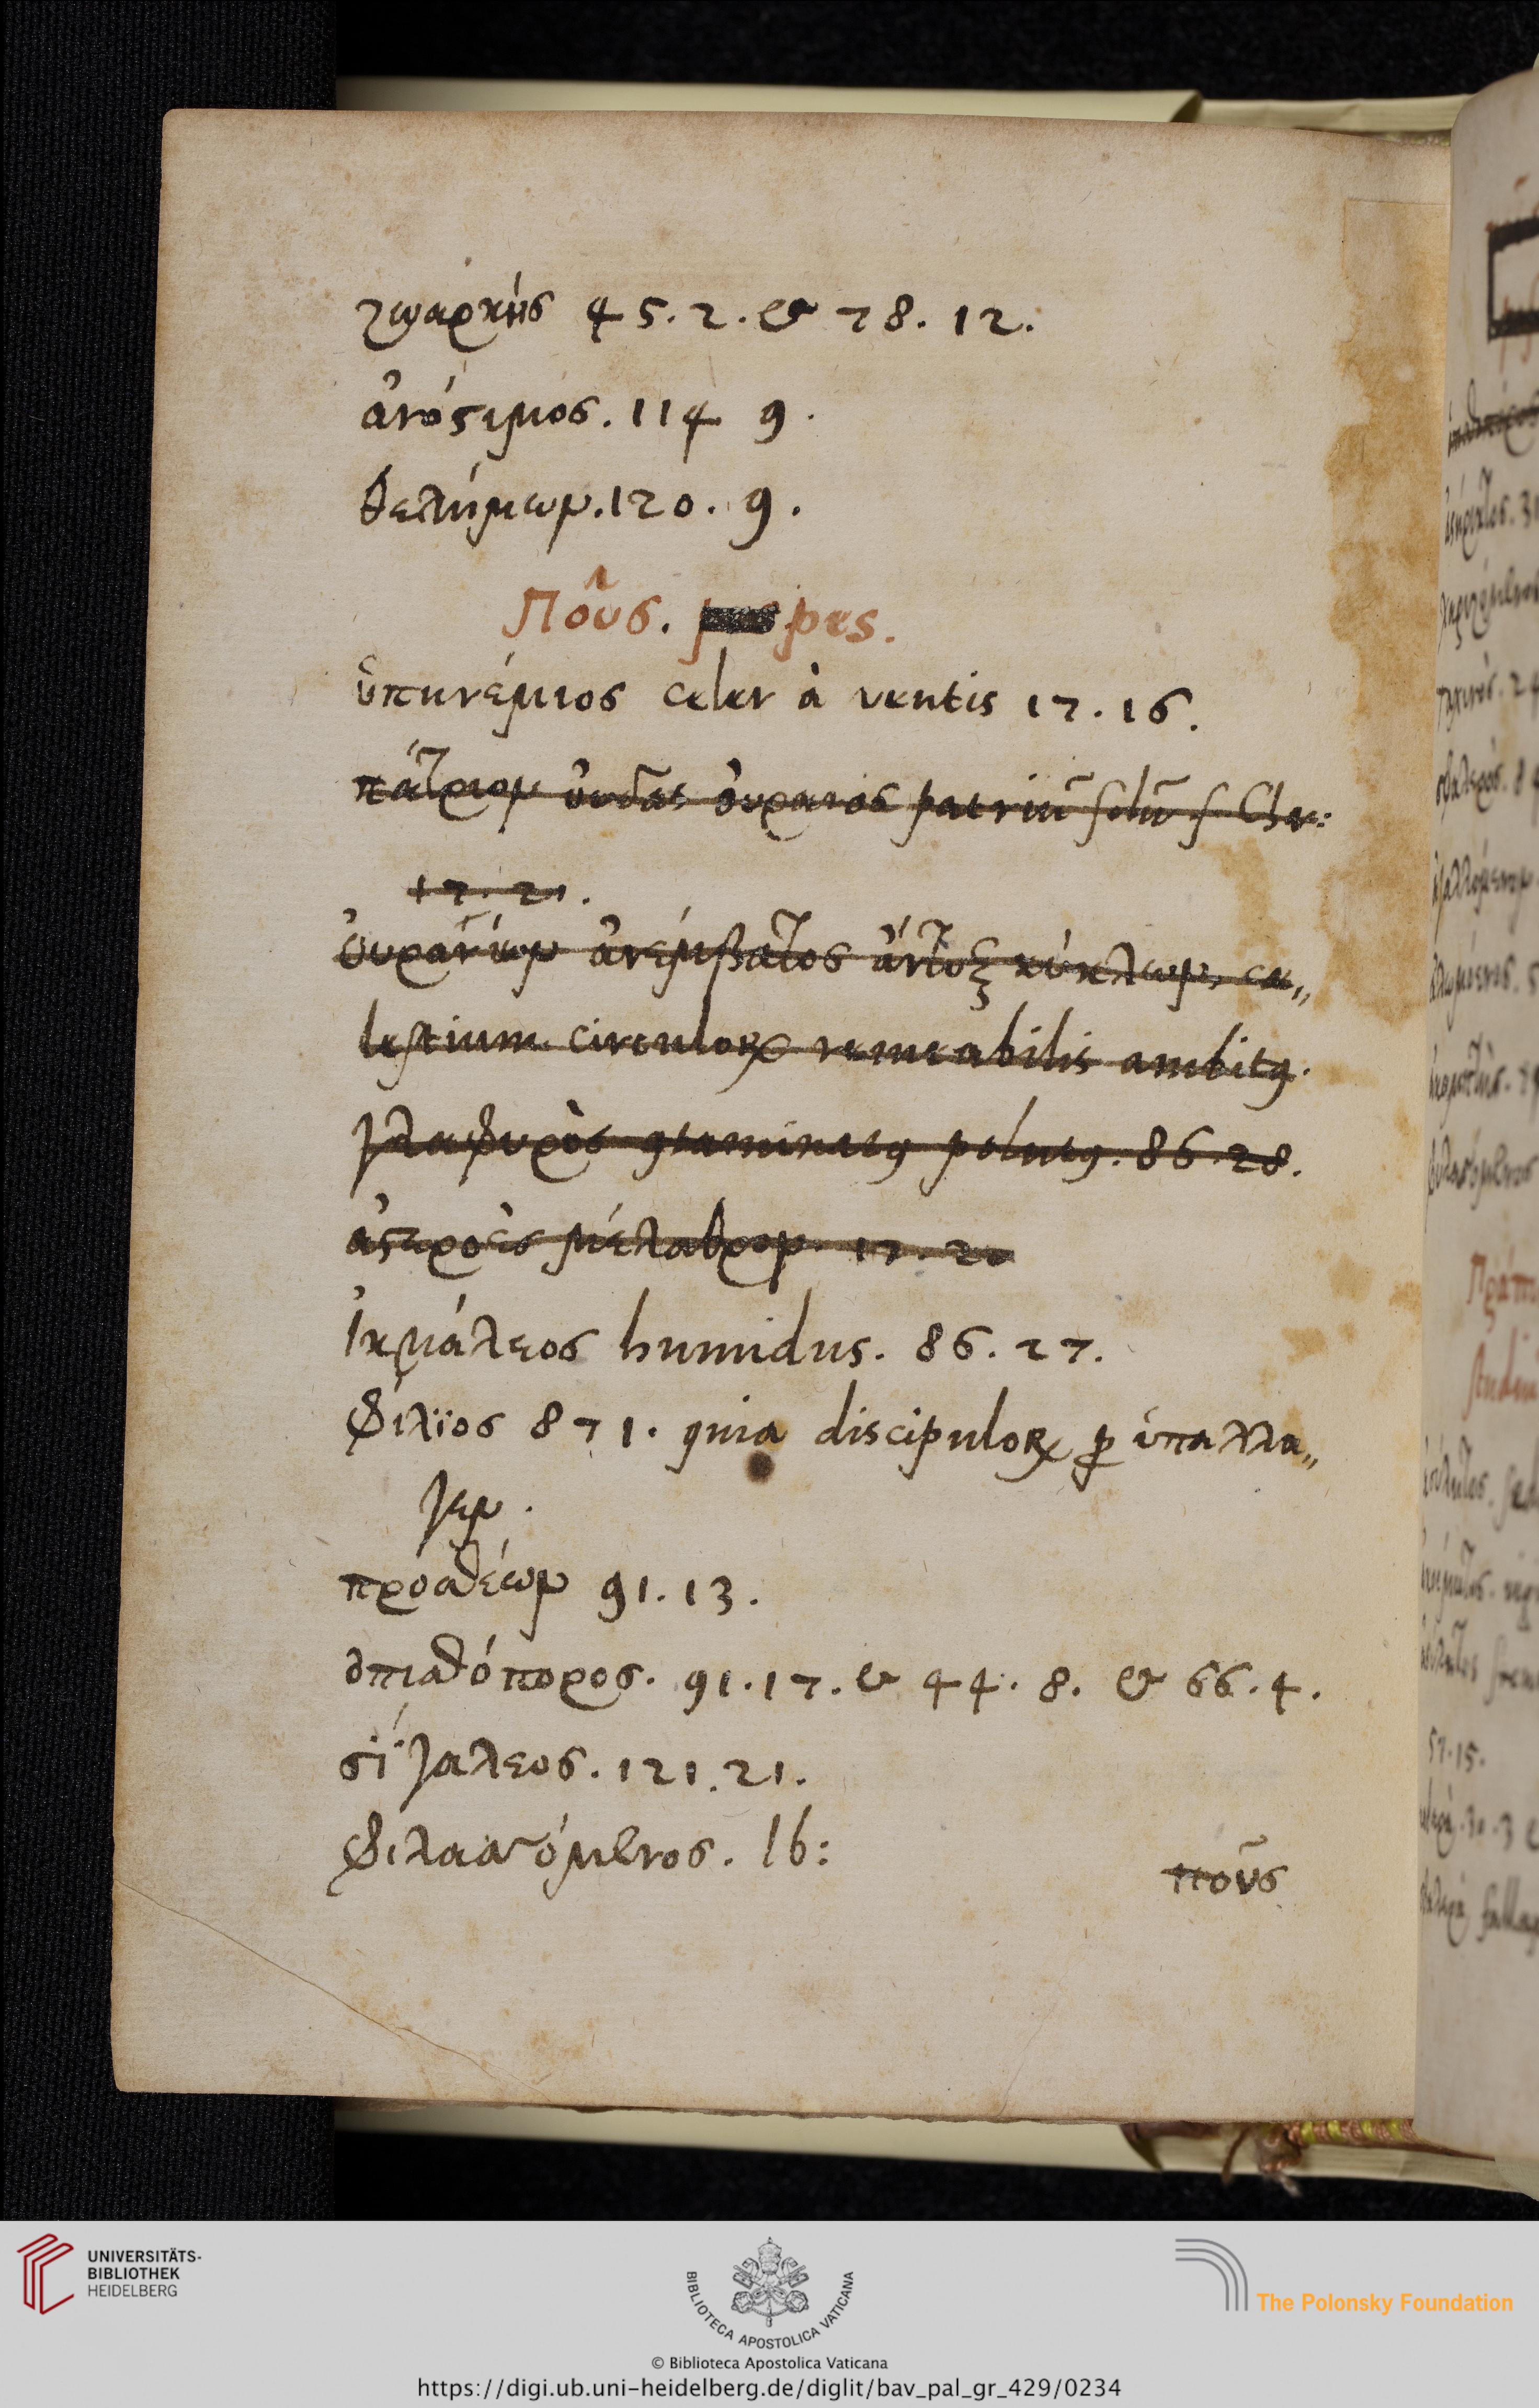 ζωαρκὴς 45. 2. & 78. 12.
ἀνόστιμος. 114 9.
θελήμων. 120. 9.
Ποῦς. pes.
ὑπηνέμιος celer à ventis 17. 16.
πάτριον οὖδας οὐρανὸς patriū solū s. Chr:
17. 21.
οὐρανίων ἀνέμβατος ἄντυξ κύκλων, cæ„
lestium circulorꝝ remeabilis ambitꝰ.
γλαφυρὸς polutꝰ. 86. 28.
ἀστερόεις μέλαθρον. 17.
ἰκμάλεος humidus. 86. 27.
φίλϊος 871. quia discipulorꝝ ꝑ ὑπαλλα„
γεν.
προθέων 91. 13.
ὀπισθόπορος. 91. 17. & 44. 8. & 66. 4.
σϊγαλεος. 121. 21.
Ib:
ποῦς
UNIVERSITÄTS-
BIBLIOTHEK
HEIDELBERG
BIBLIOTECA APOSTOLICA VATICANA
The Polonsky Foundation
© Biblioteca Apostolica Vaticana
https://digi.ub.uni-heidelberg.de/diglit/bav_pal_gr_429/0234